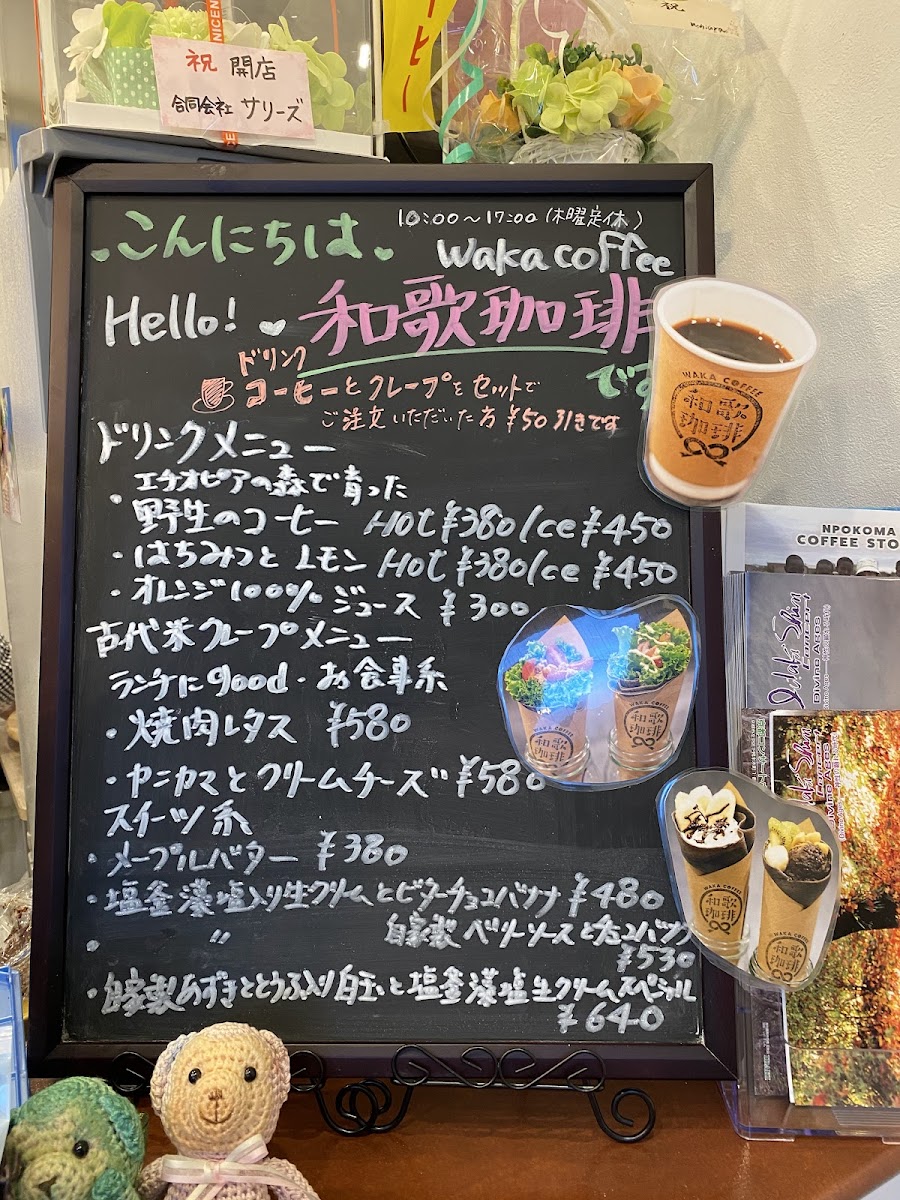 祝 開店
合同会社 サリーズ
コーヒー
10:00～17:00 (木曜定休)
こんにちは
Waka coffee
Hello! 和歌珈琲
です
ドリンク
コーヒーとクレープをセットで
ご注文いただいた方 ¥50引きです
ドリンクメニュー
・エチオピアの森で育った
野生のコーヒー Hot ¥380 Ice ¥450
・はちみつとレモン Hot ¥380 Ice ¥450
・オレンジ100%ジュース ¥300
古代米クレープメニュー
ランチにgood・お食事系
・焼肉レタス ¥580
・ヤニカマとクリームチーズ ¥580
スイーツ系
・メープルバター ¥380
・塩釜藻塩入り生クリームとビターチョコバナナ ¥480
・ 〃 自家製ベリーソースとチョコバナナ
¥530
・自家製あずきととうふ入り白玉と塩釜藻塩生クリームスペシャル
¥640
WAKA COFFEE
和歌
珈琲
WAKA COFFEE
和歌
珈琲
和歌
珈琲
WAKA COFFEE
和歌
珈琲
WAKA COFFEE
和歌
珈琲
NPOKOMA
COFFEE STO
Concert
Divine Ages